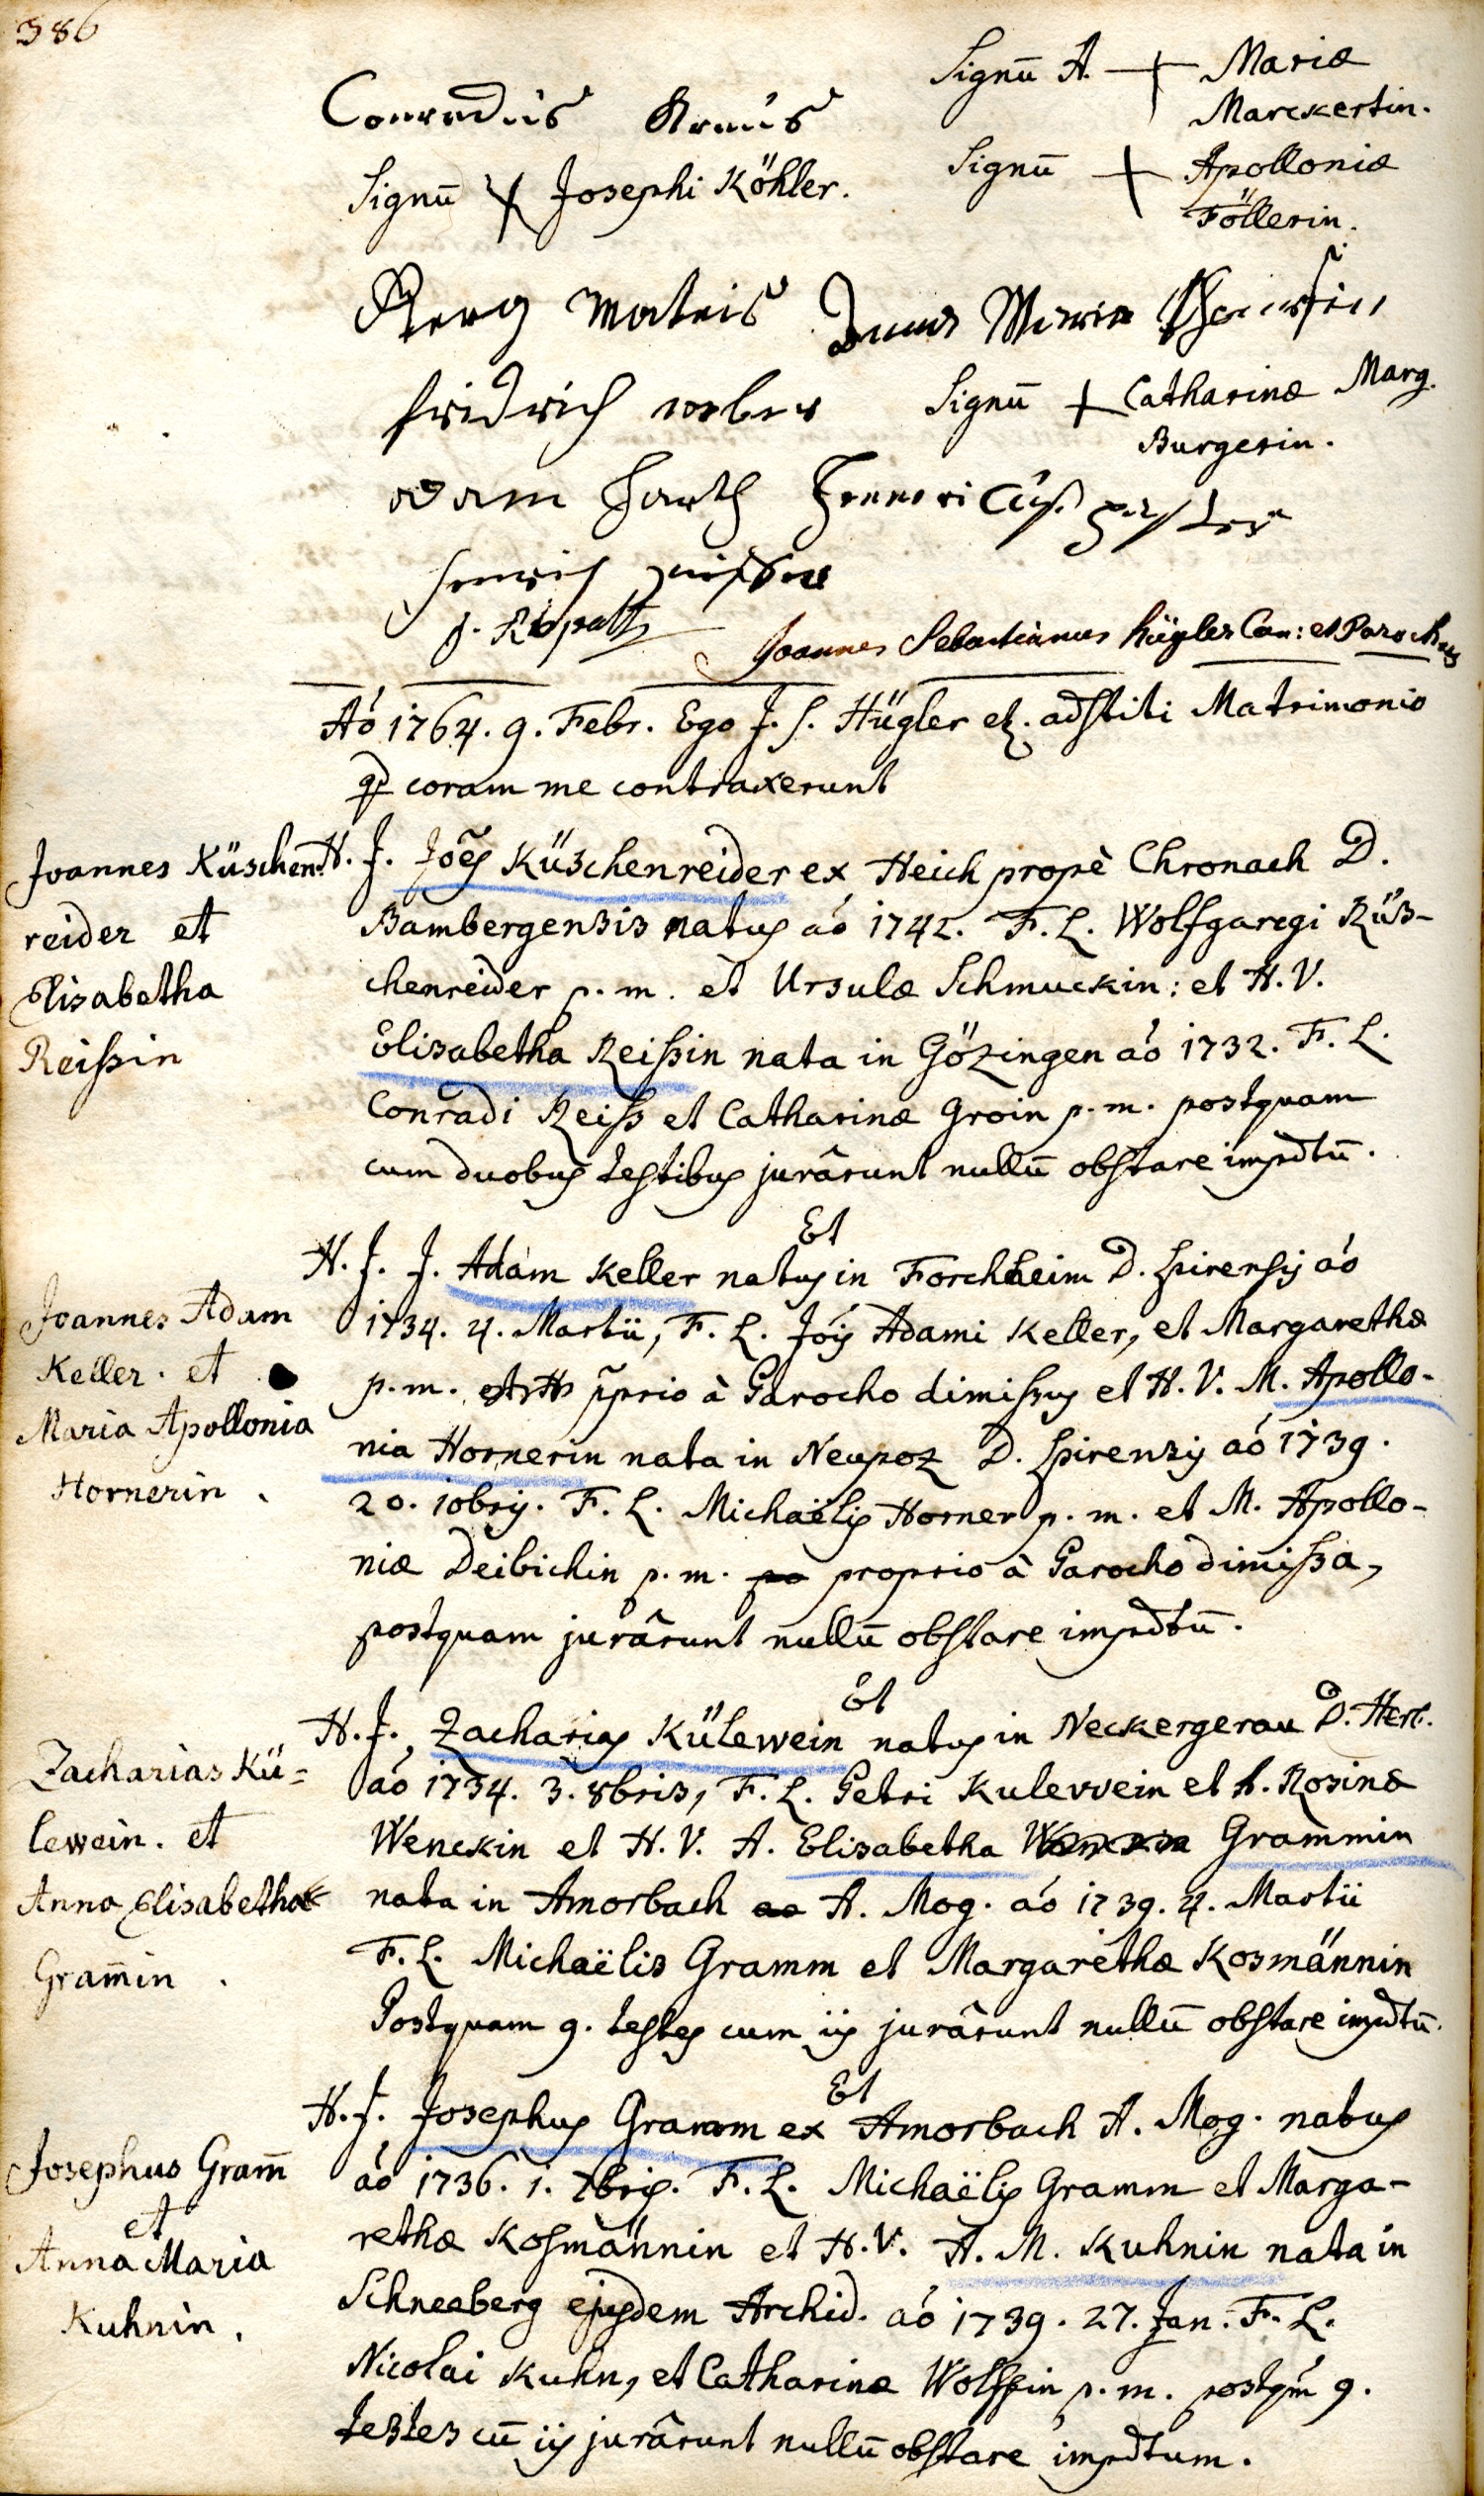 386
Conradus Kraus
Signū A. + Mariæ
Marckertin.
Signū + Josephi Köhler.
Signū + Apolloniæ
Föllerin.
Gerg Mateis
Anna Maria
fridrich weber
Signū + Catharinæ Marg.
Burgerin.
adam
Joannes Sebastianus Hügler Can: et Parochus
Aó 1764. 9. Febr. Ego J. S. Hügler etz. adstiti Matrimonio
qd coram me contraxerunt
Joannes Küschen-
reider et
Elisabetha
Reissin
H. J. Jōes Küschenreider ex Heich propè Chronach D.
Bambergensis natus aó 1742. F. L. Wolfgangi Küs-
chenreider p. m. et Ursulæ Schmuckin: et H. V.
Elisabetha Reissin nata in Gözingen aó 1732. F. L.
Conradi Reiss et Catharinæ Groin p. m. postquam
cum duobus testibus jurârunt nullū obstare impdtū.
Et
Joannes Adam
Keller. et
Maria Apollonia
Hornerin.
H. J. J. Adam Keller natus in Forchheim D. Spirensis aó
1734. 4. Martii, F. L. Jóis Adami Keller, et Margarethæ
p. m. pprio à Parocho dimissus et H. V. M. Apollo-
nia Hornerin nata in Neupoz D. Spirensis aó 1739.
20. 10bris. F. L. Michaëlis Horner p. m. et M. Apollo-
niæ Deibichin p. m. proprio à Parocho dimissa,
postquam jurârunt nullū obstare impdtū.
Et
Zacharias Kü-
lewein. et
Anna Elisabetha
Gram̄in.
H. J. Zacharias Külewein natus in Neckergerau D. Herb.
aó 1734. 3. 8bris, F. L. Petri Kulewein et A. Rosinæ
Wenckin et H. V. A. Elisabetha Grammin
nata in Amorbach A. Mog. aó 1739. 4. Martii
F. L. Michaëlis Gramm et Margarethæ Kosmännin
Postquam 9. testes cum iis jurârunt nullū obstare impdtū.
Et
Josephus Gram̄
et
Anna Maria
Kuhnin.
H. J. Josephus Gramm ex Amorbach A. Mog. natus
aó 1736. 1. 7bris. F. L. Michaëlis Gramm et Marga-
rethæ Kosmännin et H. V. A. M. Kuhnin nata in
Schneeberg ejusdem Archid. aó 1739. 27. Jan. F. L.
Nicolai Kuhn, et Catharinæ Wolffin p. m. postqm̄ 9.
testes cū iis jurârunt nullū obstare impdtum.